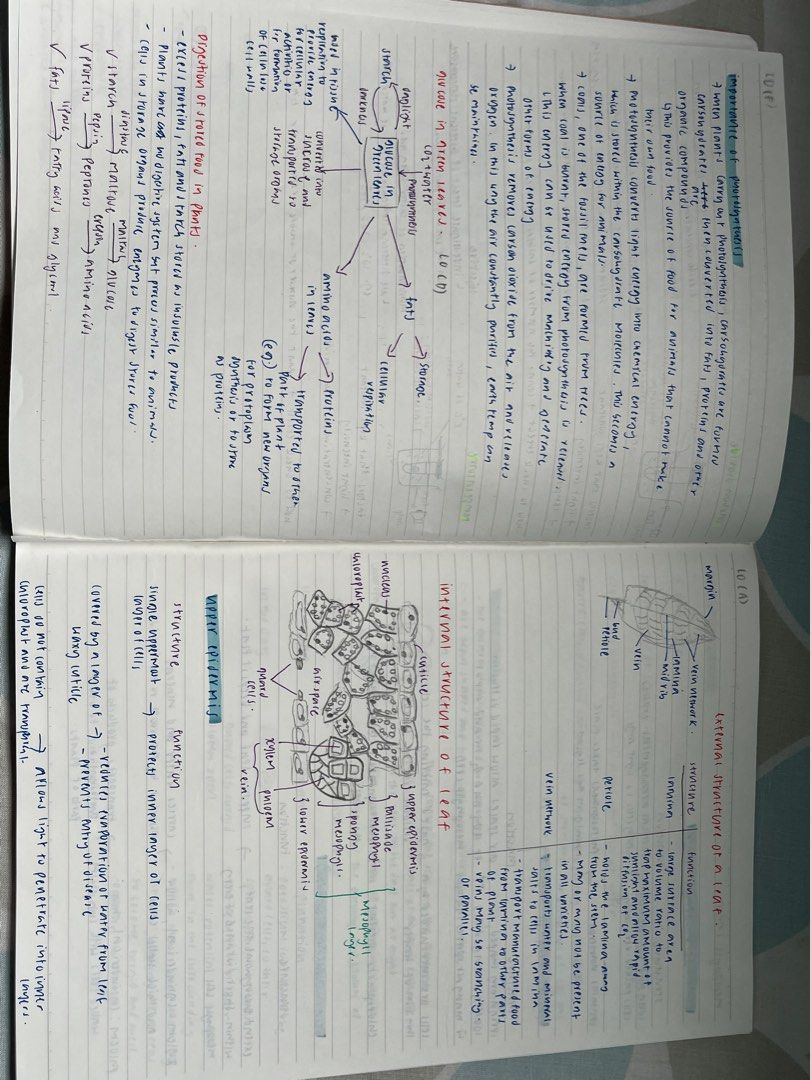 LO (F)
importance of photosynthesis
→ when plants carry out photosynthesis, carbohydrates are formed
carbohydrates are then converted into fats, proteins and other
organic compounds
↳ this provides the source of food for animals that cannot make
their own food.
→ photosynthesis converts light energy into chemical energy,
which is stored within the carbohydrate molecules. This becomes a
source of energy for animals.
→ coals, one of the fossil fuels, are formed from trees.
when coal is burnt, stored energy from photosynthesis is released.
↳ this energy can be used to drive machinery and generate
other forms of energy
→ photosynthesis removes carbon dioxide from the air and releases
oxygen. In this way the air constantly purifies, earth temp can
be maintained.
glucose in green leaves. LO (D)
CO2 + water
photosynthesis
daylight
starch
darkness
glucose in
green leaves
fats
storage
cellular
respiration
used in tissue
respiration to
provide energy
for cellular
activities or
for formation
of cellulose
cell walls
converted into
sucrose and
transported to
storage organs
amino acids
in leaves
proteins
transported to other
part of plant
(eg.) to form new organs
for protoplasm
synthesis or to store
as protein.
Digestion of stored food in plants.
- excess proteins, fats and starch stored as insoluble products
- plants have no digestive system but process similar to animals.
- cells in storage organs produce enzymes to digest stored food.
✓ starch → maltose → glucose
✓ proteins → peptones → amino acids
✓ fats → fatty acids and glycerol.
lipase
LO (A)
external structure of a leaf.
margin
vein network.
lamina
midrib
vein
bud
petiole
structure
function
lamina
- large surface area
to volume ratio to
maximum amount of
sunlight and allow rapid
diffusion of CO2
petiole
- holds the lamina away
from the stem.
- may or may not be present
in all varieties
vein network
- transports water and mineral
salts to cells in lamina
- transport manufactured food
from lamina to other parts
of plant
- veins may be branching
or parallel.
internal structure of leaf
nucleus
chloroplast
cuticle
upper epidermis
pallisade
mesophyl
spongy
mesophyll.
mesophyll
layer.
lower epidermis
air space
guard
cells.
xylem
phloem
vein.
upper epidermis
structure
function
single uppermost
layer of cells
→ protects inner layer of cells
covered by a layer of
waxy cuticle
→ - reduces evaporation of water from leaf
- prevents entry of disease
cells do not contain
chloroplast and are transparent.
→ allows light to penetrate into inner
layers.